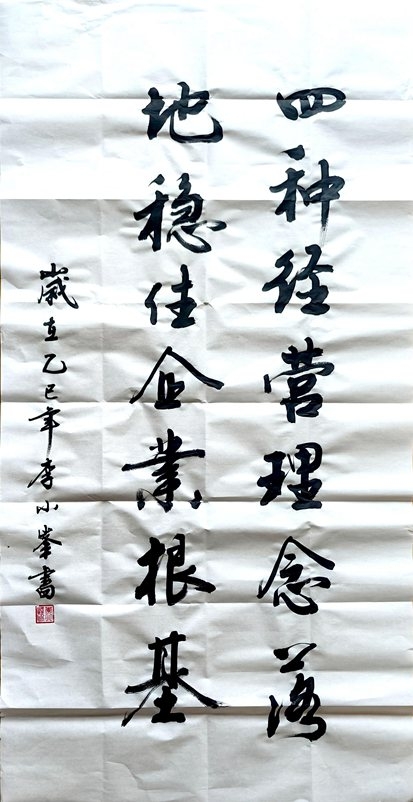 四种径营理念落
地稳佳企業根基
歲在乙巳年李小峯書